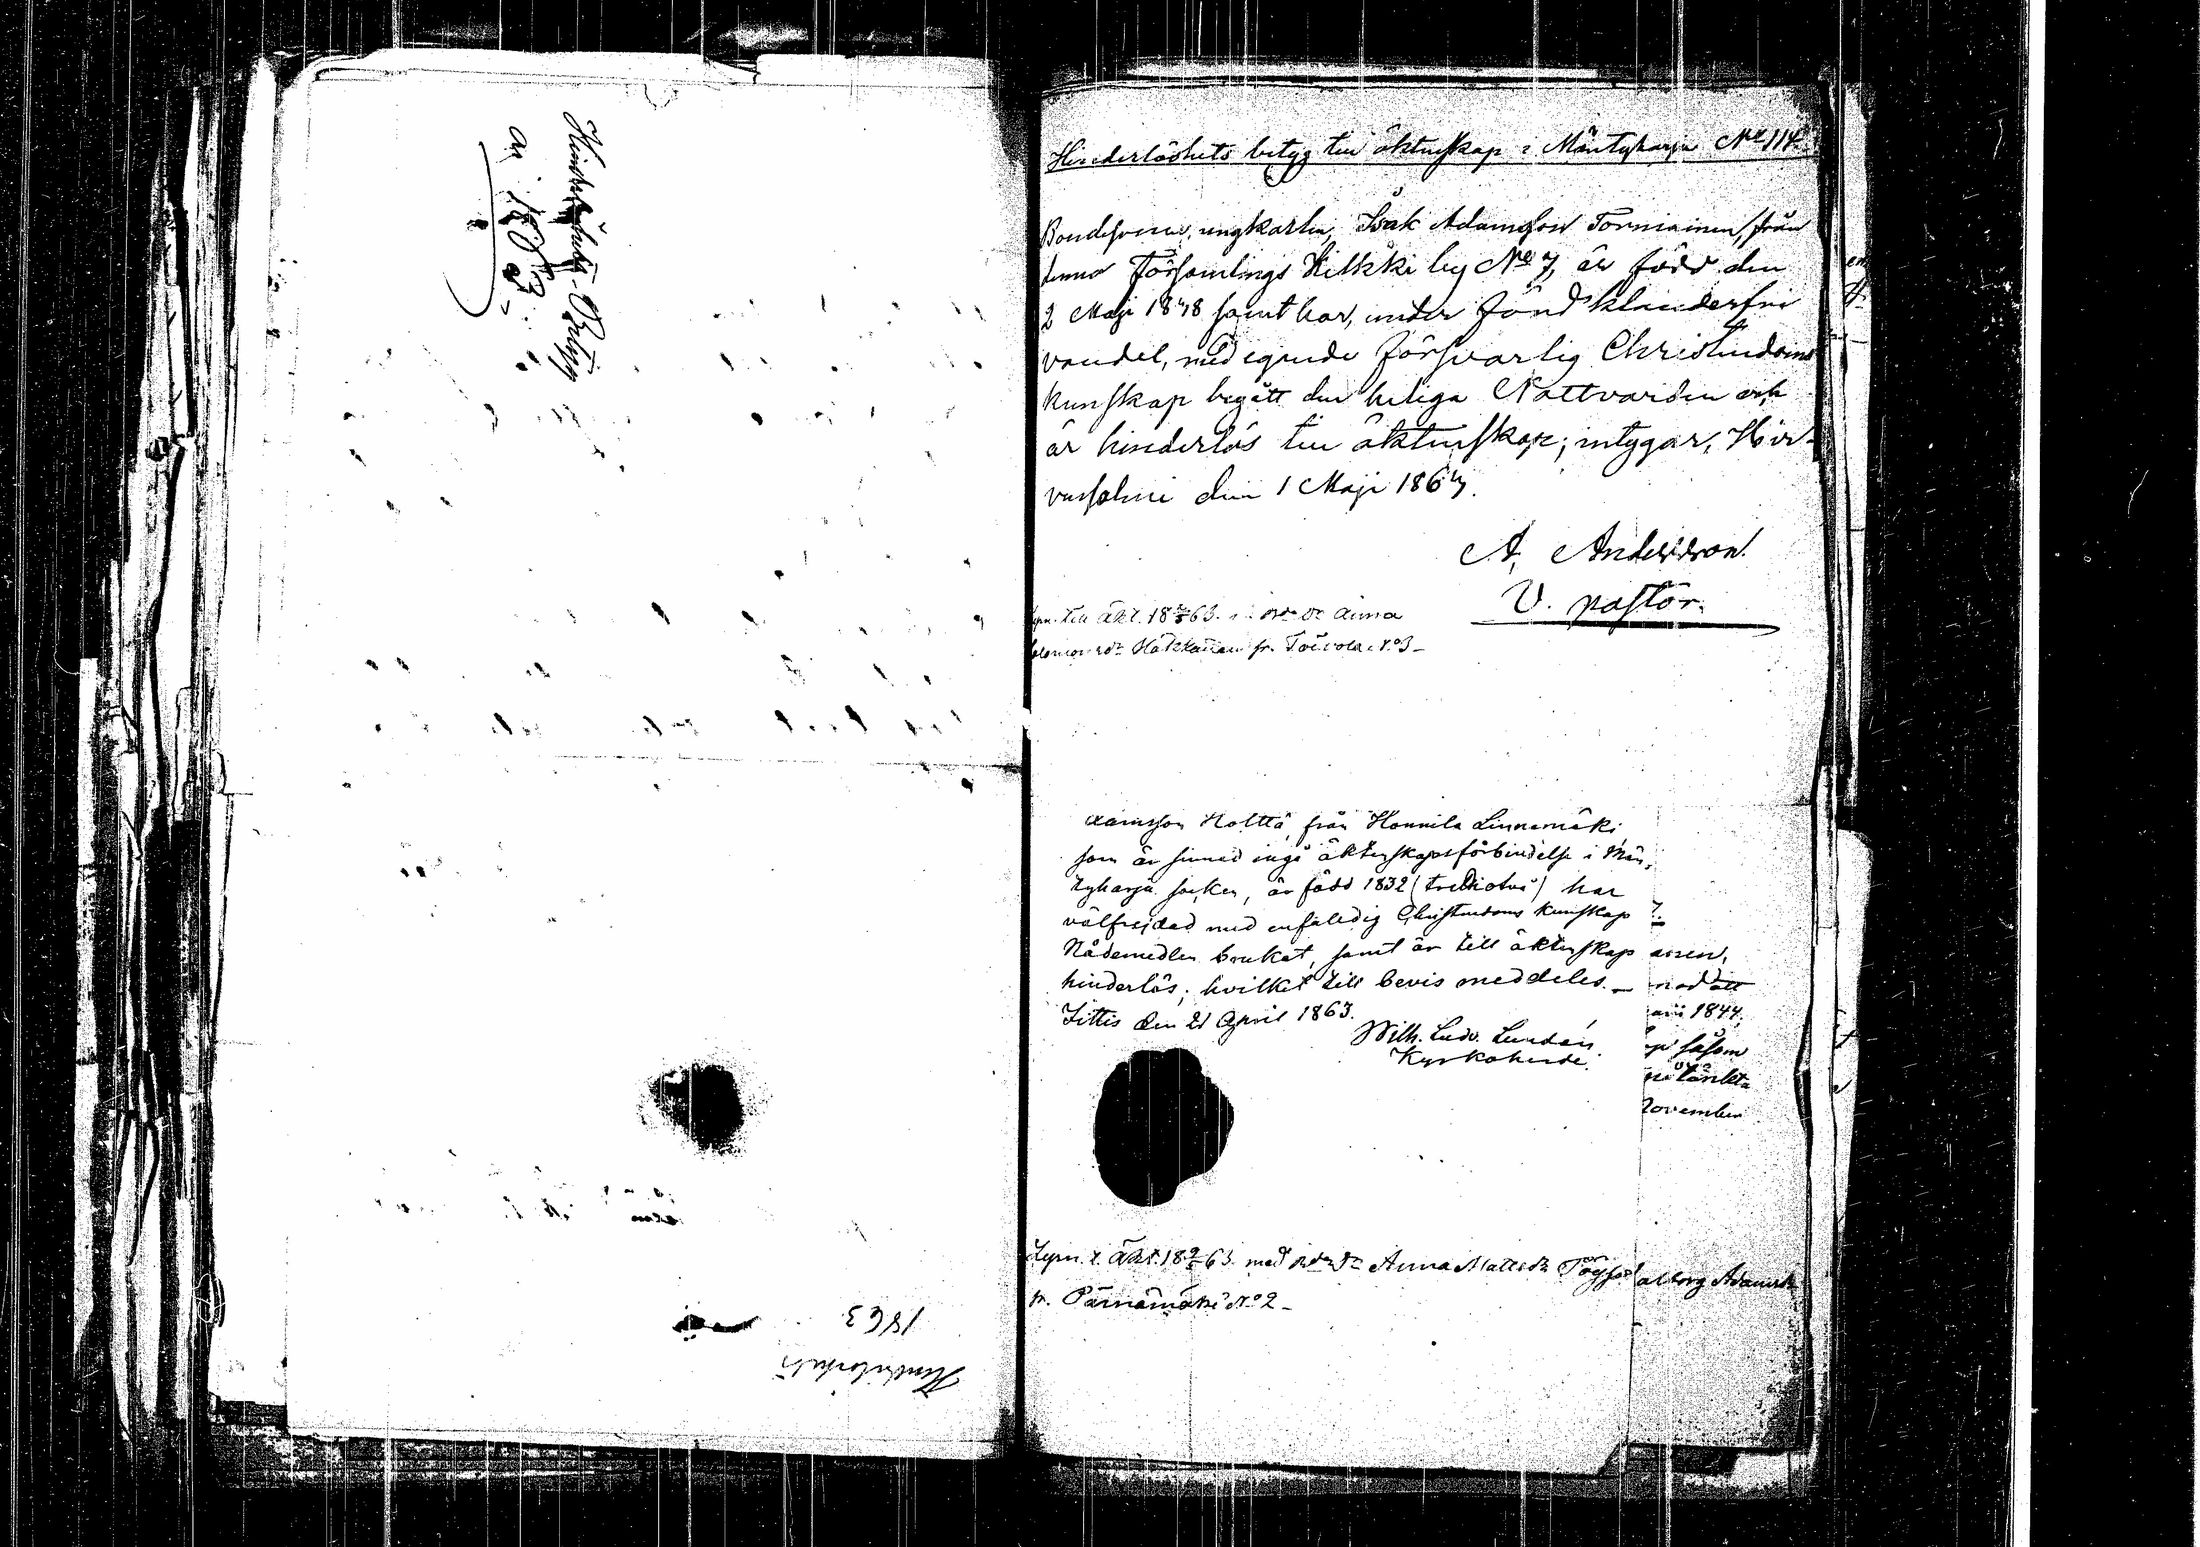 Hinderlöshets-Betyg
år 1863.
1863
Hinderlöshets
Hinderlöshets betyg till äktenskap i Mäntyharju No 114
Bondesonen, ungkarlen, Isak Adamsson Torniainen, från
denna Församlings Kilkki by No 7, är född den
2 Maji 1848 samt har, under förd klanderfri
vandel, med egande försvarlig Christendoms
kunskap begått den heliga Nattvarden och
är hinderlös till äktenskap; intygar, Hir-
vensalmi den 1 Maji 1863.
A. Andersson
V. pastor.
till äkt. 18 63. Anna
Hätkänen fr. Toivola No 3
Adamsson Holttä, från Hannila Linnamäki
som är sinnad ingå äktenskapsförbindelse i Män-
tyharju socken, är född 1832 (trettiotvå) har
välfrejdad med enfaldig Christendoms kunskap
Nådemedlen brukat, samt är till äktenskap
hinderlös; hvilket till bevis meddeles. –
Jittis den 21 April 1863.
Wilh. Ludv. Lundén
Kyrkoherde.
assen,
nad att
arii 1844,
såsom
tänkta
November
Lysn. t. äkt. 18 63 med Anna Mattsdr
fr. Pärnämäki No 2 –
Adamsdr